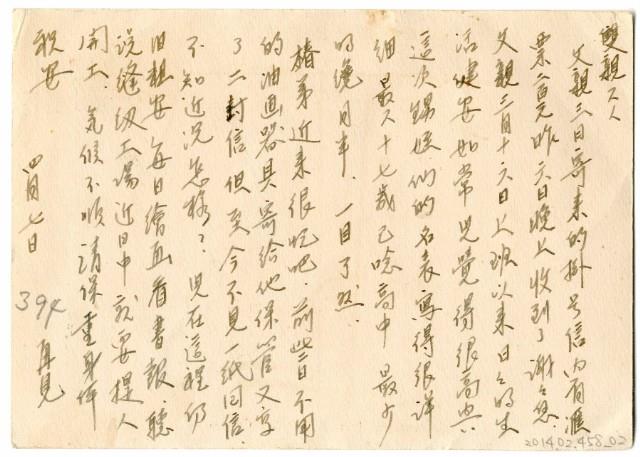 雙親大人
父親三日寄來的掛号信內有滙
票二百元昨六日晚上收到了謝々您
父親二月十六日上班以來日々的生
活健安如常兒覺得很高兴
這次錦姪们的名表寫得很詳
細 最大十七歲已唸高中 最少
的纔同年 一目了然
椿弟近來很忙吧 前些日不用
的油画器具寄給他保管又寄
了二封信但至今不見一紙回信
不知近況怎樣？ 兒在這裡仍
旧粗安 每日繪画看書報 聽
說縫纫工場近日中就要提人
開工 氣候不順請保重身体
祝安
四月七日
394 再見
2014.02.458_02